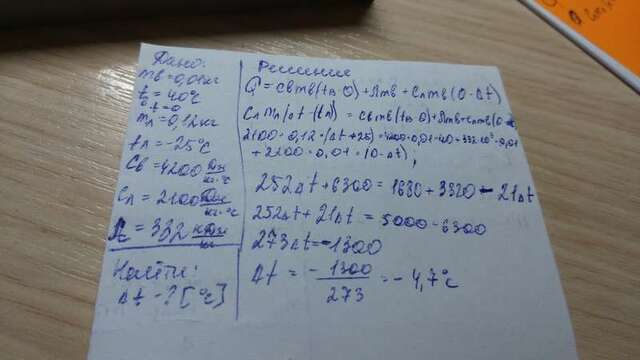 Дано:
mв=0,01кг
t=40°C
t=0
mл=0,12кг
tл=-25°C
Cв=4200 Дж/кг·°C
Cл=2100 Дж/кг·°C
λ=332 кДж/кг
Найти:
Δt-?[°C]
Решение
Q=Cвmв(tв-0)+λmв+Cлmв(0-Δt)
Cлmл(Δt-(tл))=Cвmв(tв-0)+λmв+Cлmв(0-
2100·0,12·(Δt+25)=4200·0,01·40+332·10³·0,01
+2100·0,01·(0-Δt),
252Δt+6300=1680+3320-21Δt
252Δt+21Δt=5000-6300
273Δt=-1300
Δt=-1300/273=-4,7°C